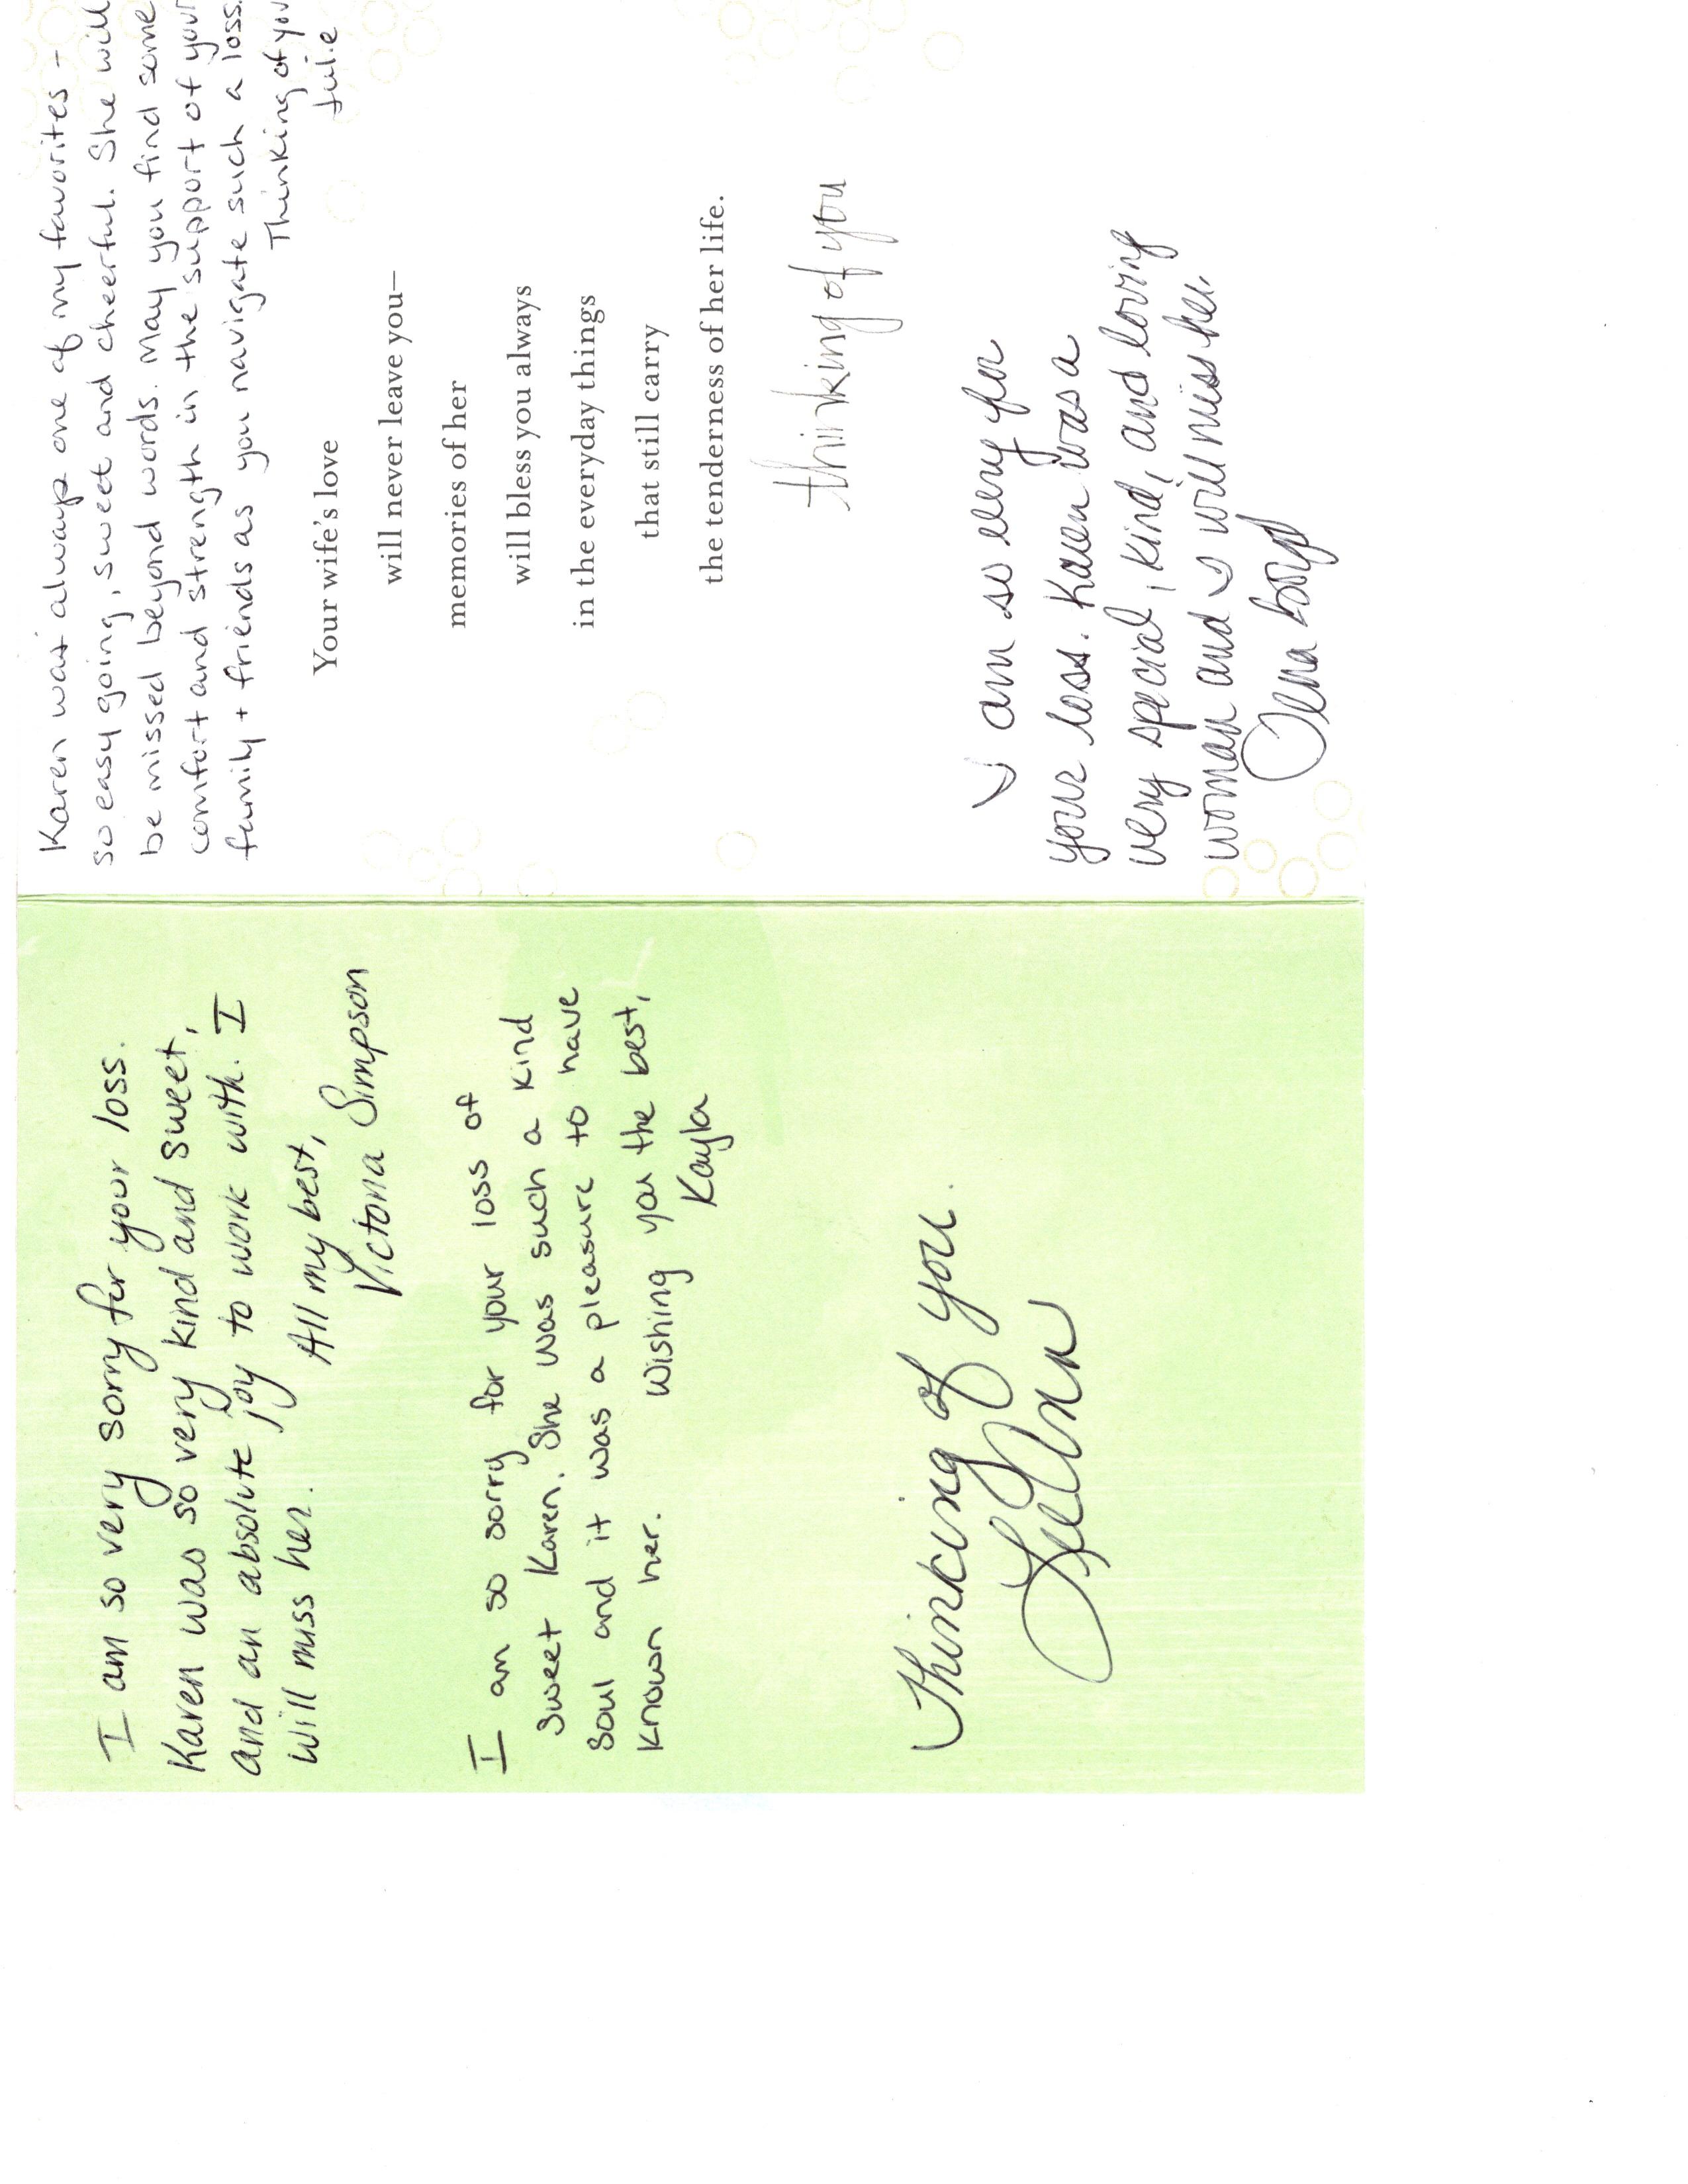 I am so very sorry for your loss.
Karen was so very kind and sweet,
and an absolute joy to work with. I
will miss her.
All my best,
Victoria Simpson
I am so sorry for your loss of
Sweet Karen. She was such a kind
Soul and it was a pleasure to have
known her. Wishing you the best,
Kayla
Thinking of you.
LeeAnn
Karen was always one of my favorites -
so easy going, sweet and cheerful. She will
be missed beyond words. May you find some
comfort and strength in the support of your
family + friends as you navigate such a loss.
Thinking of you
Julie
Your wife's love
will never leave you—
memories of her
will bless you always
in the everyday things
that still carry
the tenderness of her life.
thinking of you
I am so very for
your loss. Karen was a
very special, kind, and loving
woman and I will miss her.